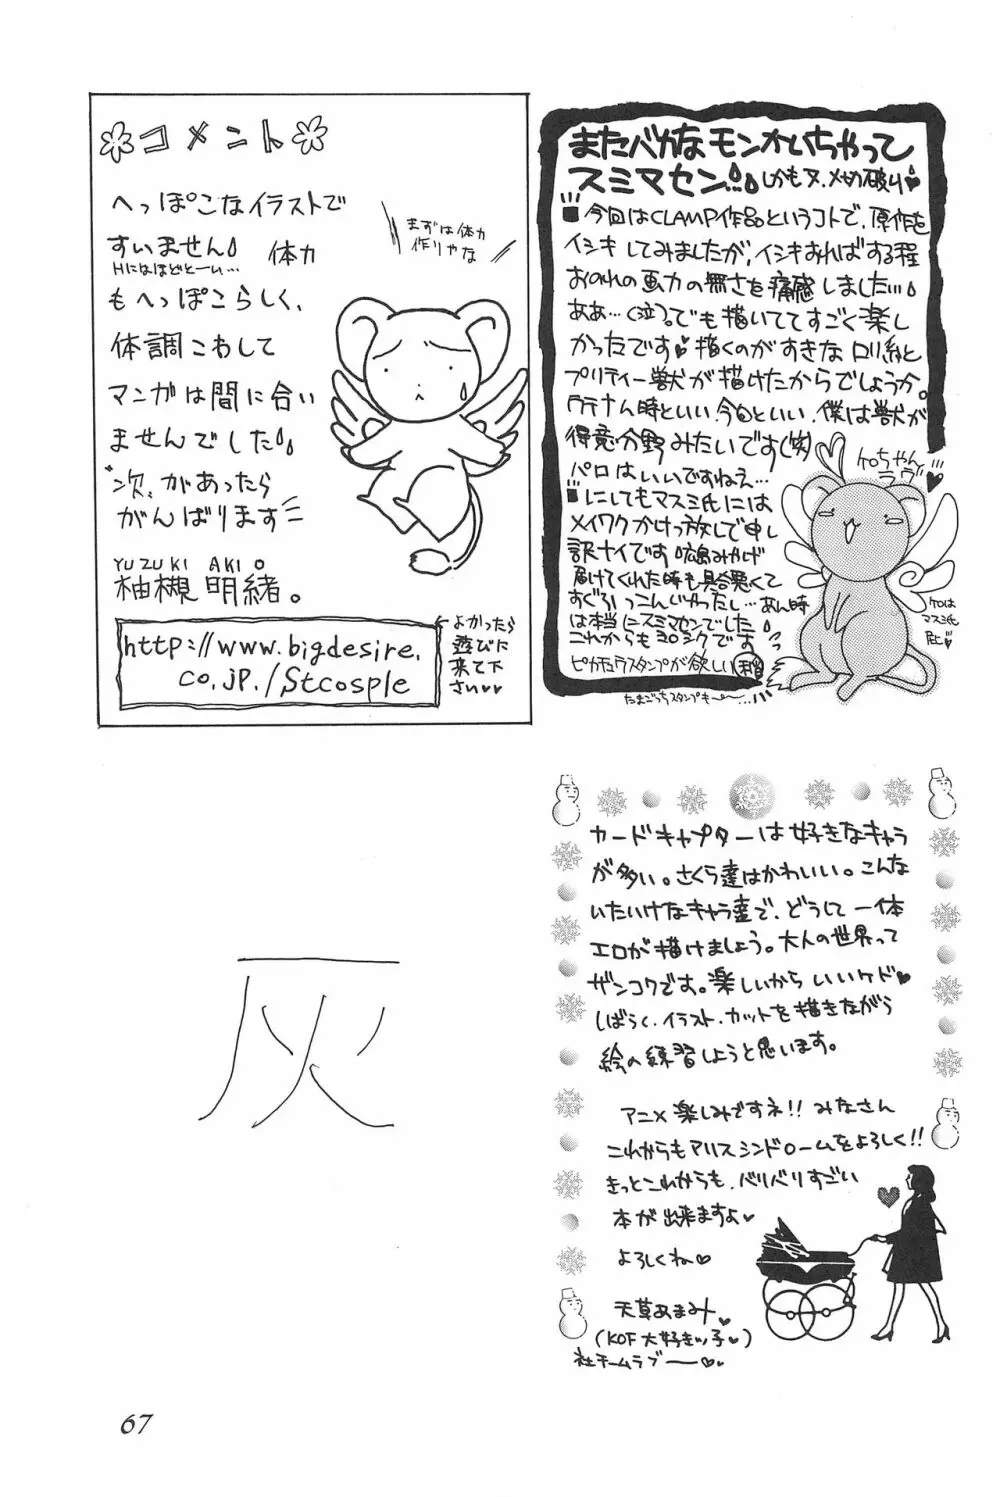 コメント
へっぽこなイラストで
すいません
Hにはほどとーい…
体力
もへっぽこらしく、
体調こわして
マンガは間に合い
ませんでした
次、があったら
がんばります
まずは体力
作りやな
YUZUKI AKIO
柚槻 明緒。
http://www.bigdesire.
co.jp./Stcosple
よかったら
遊びに
来て下
さい
またバカなモンかいちゃって
スミマセン… しかもヌ、メせめ破り
今回はCLAMP作品というコトで、原作を
イシキしてみましたが、イシキすればする程
おのれの画力の無さを痛感しました…
ああ…(泣)。でも描いててすごく楽し
かったです 描くのがすきなロリ絵と
プリティー獣が描けたからでしょうか。
時といい、今回といい、僕は獣が
得意分野みたいです(笑)
パロはいいですねえ…
にしてもマスミ氏には
メイワクかけっ放しで申し
訳ナイです 広島みやげ
届けてくれた時も具合悪くて
すぐふっこんじゃったし…あん時
は本当にスミマセンでした
これからもヨロシクです
ピカチュウスタンプが欲しい
たまごっちスタンプも
ケロちゃん
ラヴ
ケロは
マスミ氏
カードキャプターは好きなキャラ
が多い。さくら達はかわいい。こんな
いたいけなキャラ達で、どうして一体
エロが描けましょう。大人の世界って
ザンコクです。楽しいからいいケド
しばらく、イラスト、カットを描きながら
絵の練習しようと思います。
アニメ楽しみですネ!! みなさん
これからもアリスシンドロームをよろしく!!
きっとこれからも、バリバリすごい
本が出来ますよ
よろしくね
天草あまみ
(KOF大好きッ子)
社チームラブー
灰
67